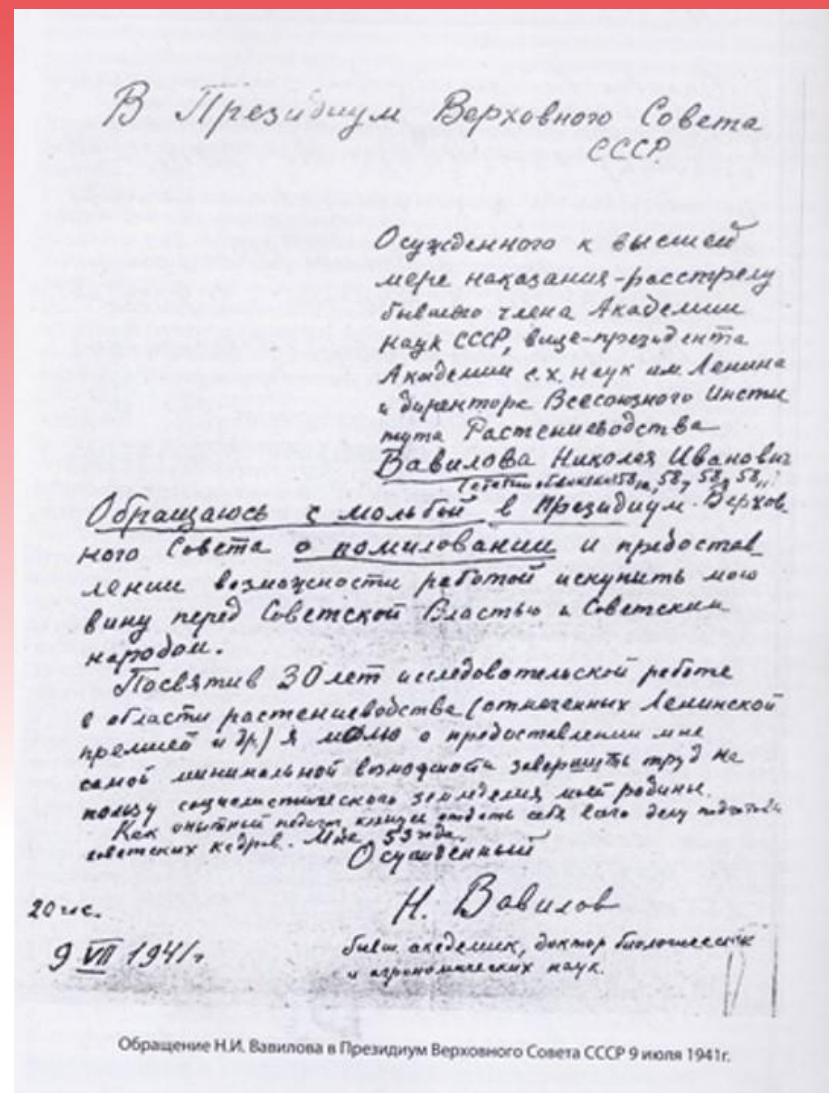 В Президиум Верховного Совета
СССР.
Осужденного к высшей
мере наказания-расстрелу
бывшего члена Академии
наук СССР, вице-президента
Академии с.х. наук им. Ленина
и директора Всесоюзного Инсти
тута Растениеводства
Вавилова Николая Иванович
Обращаюсь с мольбой в Президиум Верхов
ного Совета о помиловании и предостав
лении возможности работой искупить мою
вину перед Советской Властью и Советским
народом.
Посвятив 30 лет исследовательской работе
в области растениеводства (отмеченных Ленинской
премией и др) я молю о предоставлении мне
самой минимальной возможности завершить труд на
пользу социалистического земледелия моей родины.
Как опытный педагог клянусь отдать себя всего делу подготовки
советских кадров. Мне 53 года.
Осужденный
20 час.
Н. Вавилов
9 VII 1941г
бывш. академик, доктор биологических
и агрономических наук.
Обращение Н.И. Вавилова в Президиум Верховного Совета СССР 9 июля 1941г.